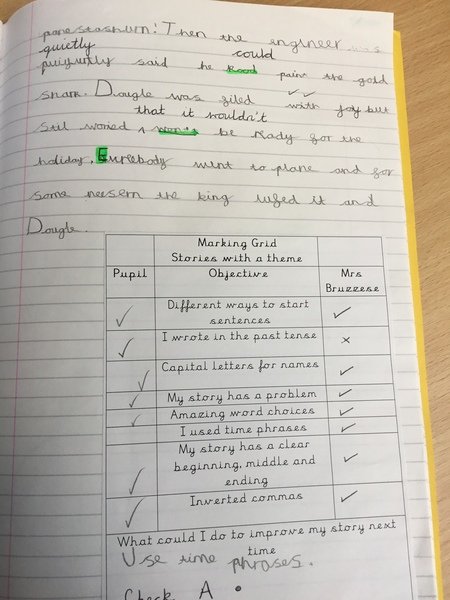 Then the engineer was
quietly could
said he paint the gold
shark. Dougle was filed with joy but
that it wouldn't
still woried won't be ready for the
holiday. Evrebody went to plane and for
some the king and
Dougle.
Marking Grid
Stories with a theme
Pupil Objective Mrs Bruzzese
Different ways to start
sentences
I wrote in the past tense
Capital letters for names
My story has a problem
Amazing word choices
I used time phrases
My story has a clear
beginning, middle and
ending
Inverted commas
What could I do to improve my story next
time
Use time phrases.
Check A